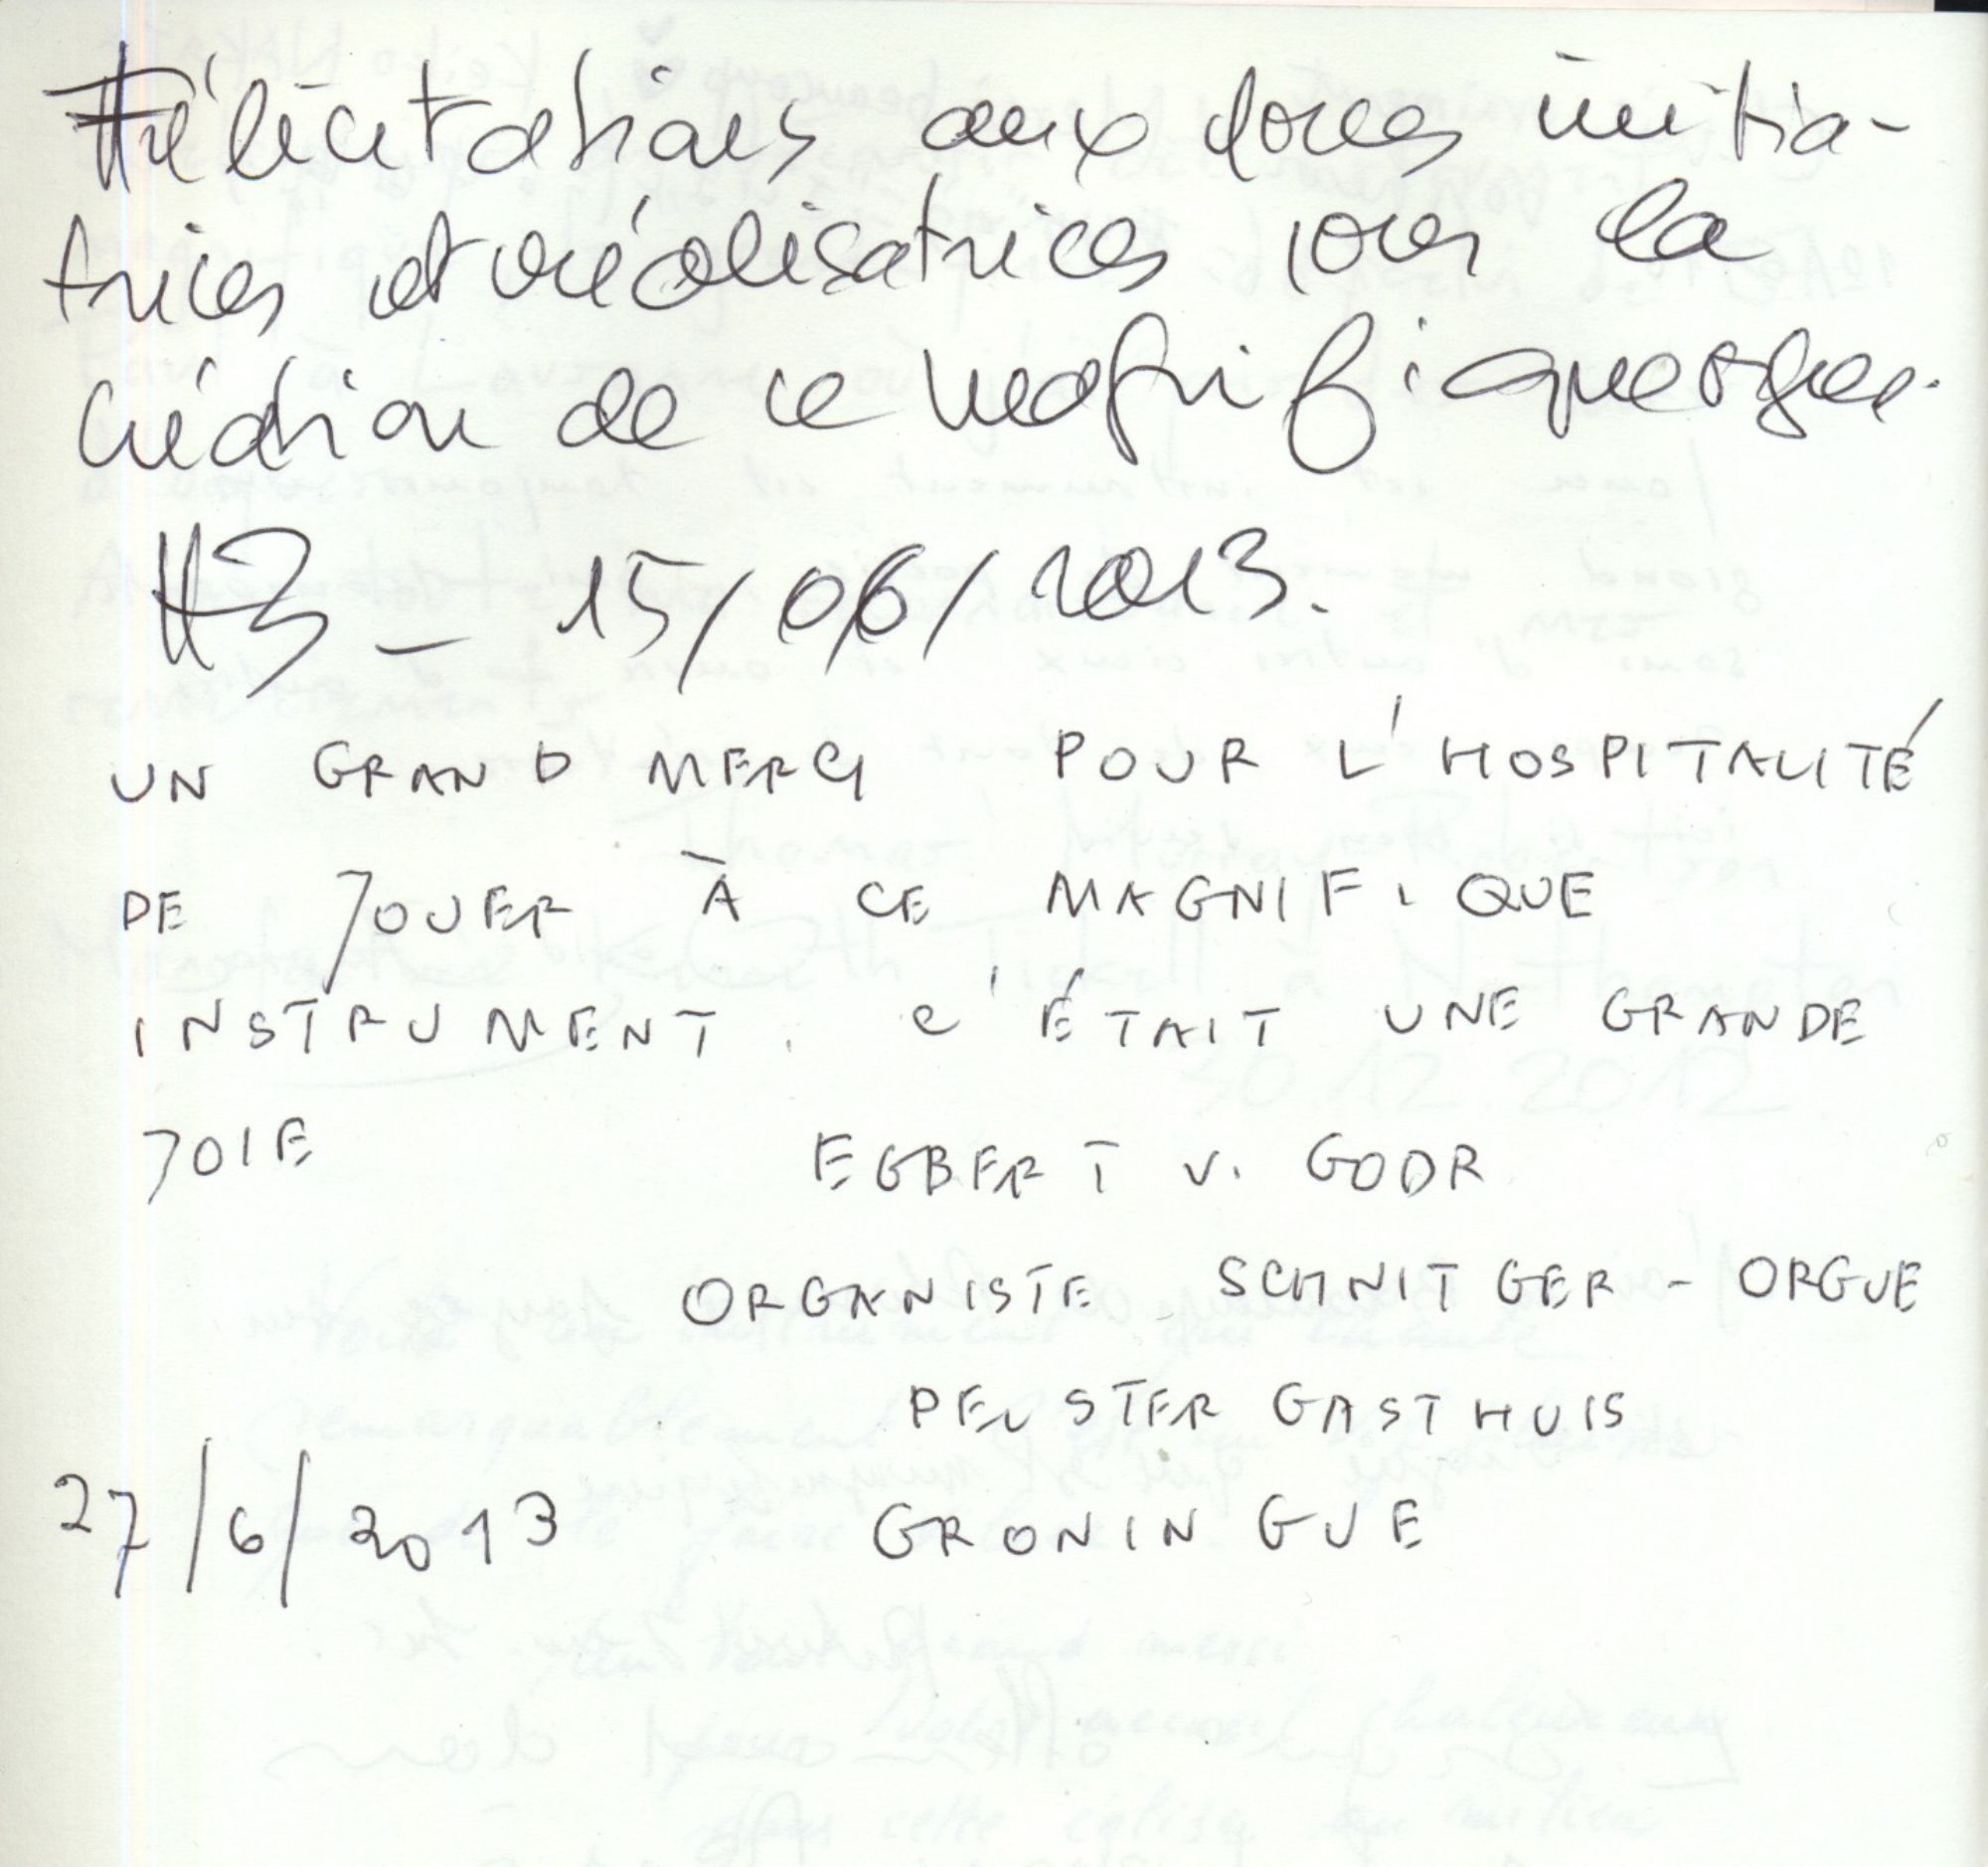 Félicitations aux forces initia-
trices et réalisatrices pour la
création de ce magnifique orgue.
HB - 15/06/2013.
UN GRAND MERCI POUR L'HOSPITALITÉ
DE JOUER À CE MAGNIFIQUE
INSTRUMENT. C'ÉTAIT UNE GRANDE
JOIE EGBERT V. GOOR
ORGANISTE SCHNITGER-ORGUE
PELSTER GASTHUIS
27/6/2013 GRONINGUE